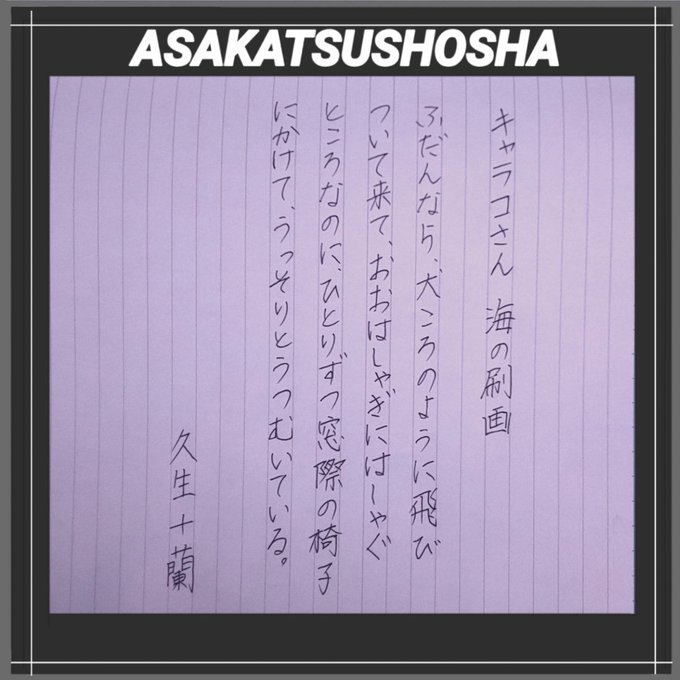 ASAKATSUSHOSHA
キャラコさん 海の刷画
ふだんなら、犬ころのように飛び
ついて来て、おおはしゃぎにはしゃぐ
ところなのに、ひとりずつ窓際の椅子
にかけて、うっそりとうつむいている。
久生十蘭